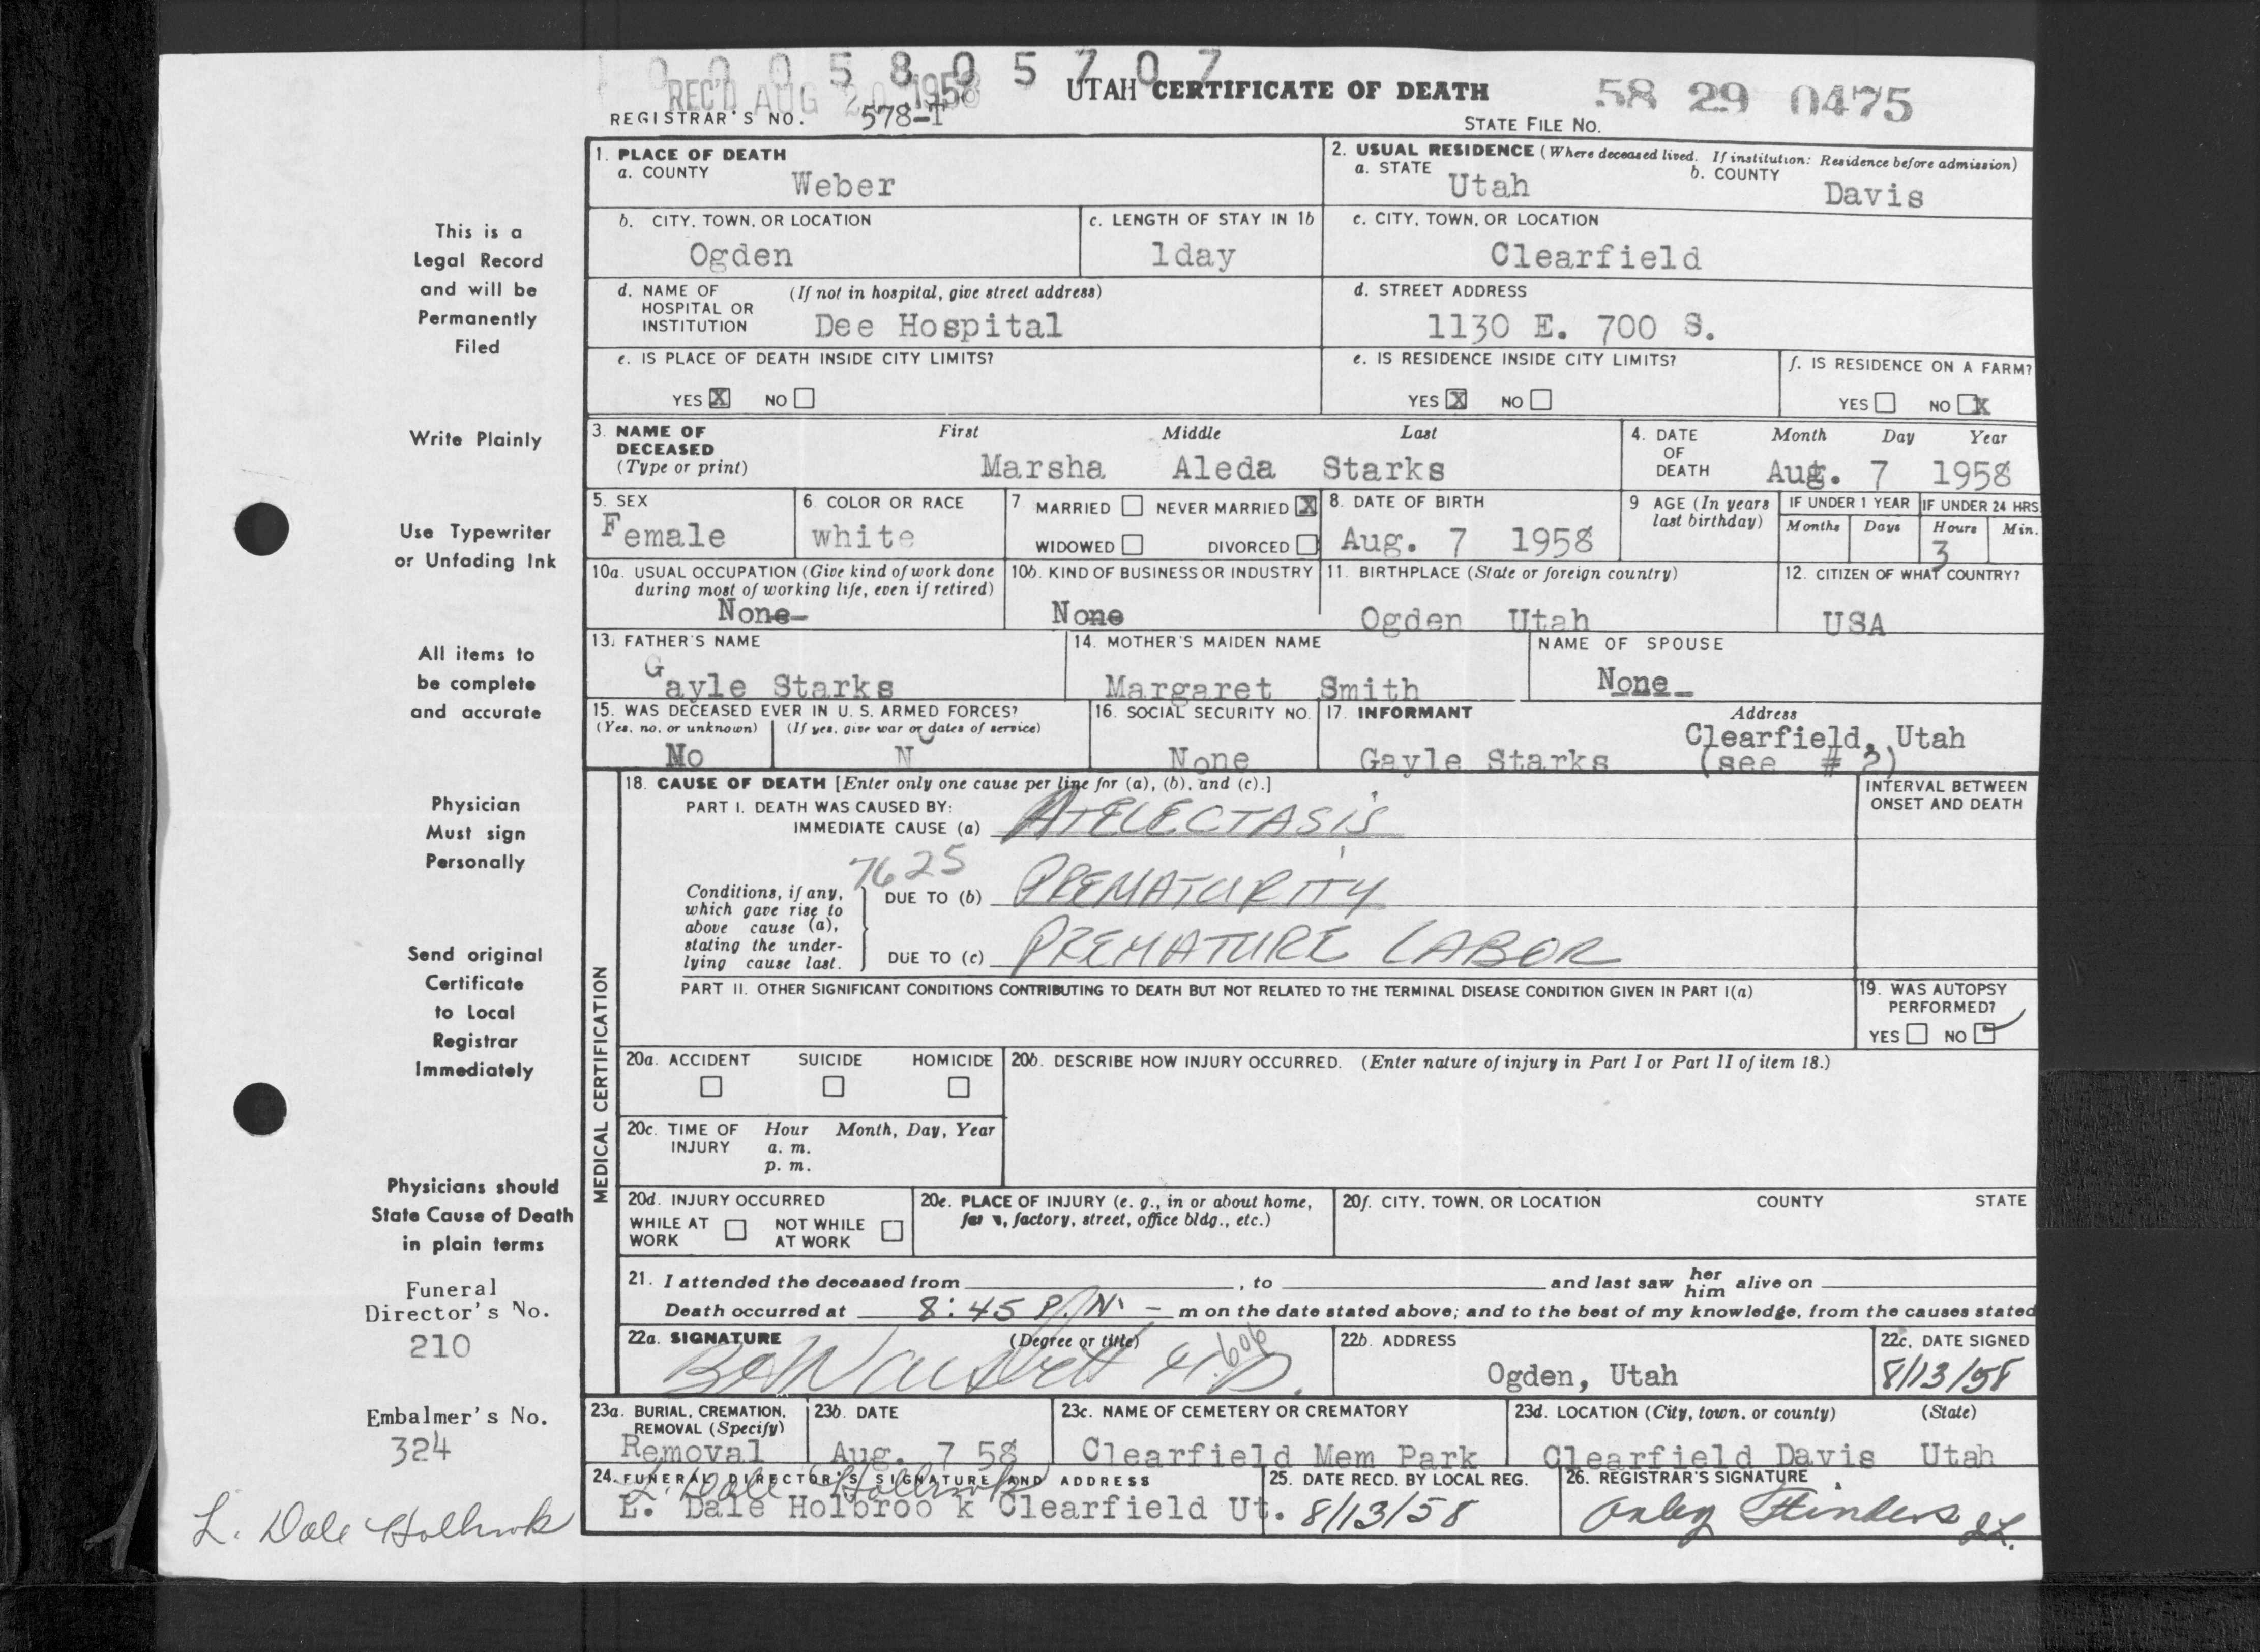 0 0 0 5 8 0 5 7 0 7
REC'D AUG 20 1958
UTAH CERTIFICATE OF DEATH
58 29 0475
REGISTRAR'S NO. 578-T
STATE FILE NO.
1. PLACE OF DEATH
a. COUNTY Weber
2. USUAL RESIDENCE (Where deceased lived. If institution: Residence before admission)
a. STATE Utah b. COUNTY Davis
b. CITY, TOWN, OR LOCATION Ogden
c. LENGTH OF STAY IN 1b 1day
c. CITY, TOWN, OR LOCATION Clearfield
d. NAME OF HOSPITAL OR INSTITUTION (If not in hospital, give street address) Dee Hospital
d. STREET ADDRESS 1130 E. 700 S.
e. IS PLACE OF DEATH INSIDE CITY LIMITS?
YES X NO
e. IS RESIDENCE INSIDE CITY LIMITS?
YES X NO
f. IS RESIDENCE ON A FARM?
YES NO X
3. NAME OF DECEASED (Type or print)
First Middle Last
Marsha Aleda Starks
4. DATE OF DEATH Month Day Year
Aug. 7 1958
5. SEX Female
6. COLOR OR RACE white
7 MARRIED NEVER MARRIED X
WIDOWED DIVORCED
8. DATE OF BIRTH Aug. 7 1958
9 AGE (In years last birthday)
IF UNDER 1 YEAR Months Days
IF UNDER 24 HRS Hours 3 Min.
10a. USUAL OCCUPATION (Give kind of work done during most of working life, even if retired) None
10b. KIND OF BUSINESS OR INDUSTRY None
11. BIRTHPLACE (State or foreign country) Ogden Utah
12. CITIZEN OF WHAT COUNTRY? USA
13. FATHER'S NAME Gayle Starks
14. MOTHER'S MAIDEN NAME Margaret Smith
NAME OF SPOUSE None
15. WAS DECEASED EVER IN U. S. ARMED FORCES?
(Yes, no, or unknown) No
(If yes, give war or dates of service) N
16. SOCIAL SECURITY NO. None
17. INFORMANT Gayle Starks
Address Clearfield, Utah
(see # 2)
MEDICAL CERTIFICATION
18. CAUSE OF DEATH [Enter only one cause per line for (a), (b), and (c).]
INTERVAL BETWEEN ONSET AND DEATH
PART I. DEATH WAS CAUSED BY:
IMMEDIATE CAUSE (a) ATELECTASIS
7625
Conditions, if any, which gave rise to above cause (a), stating the underlying cause last.
DUE TO (b) PREMATURITY
DUE TO (c) PREMATURE LABOR
PART II. OTHER SIGNIFICANT CONDITIONS CONTRIBUTING TO DEATH BUT NOT RELATED TO THE TERMINAL DISEASE CONDITION GIVEN IN PART I(a)
19. WAS AUTOPSY PERFORMED?
YES NO
20a. ACCIDENT SUICIDE HOMICIDE
20b. DESCRIBE HOW INJURY OCCURRED. (Enter nature of injury in Part I or Part II of item 18.)
20c. TIME OF INJURY Hour a. m. p. m. Month, Day, Year
20d. INJURY OCCURRED
WHILE AT WORK NOT WHILE AT WORK
20e. PLACE OF INJURY (e. g., in or about home, factory, street, office bldg., etc.)
20f. CITY, TOWN, OR LOCATION COUNTY STATE
21. I attended the deceased from , to and last saw her him alive on
Death occurred at 8:45 P.M. m on the date stated above; and to the best of my knowledge, from the causes stated
22a. SIGNATURE (Degree or title)
M.D.
606
22b. ADDRESS Ogden, Utah
22c. DATE SIGNED 8/13/58
23a. BURIAL, CREMATION, REMOVAL (Specify) Removal
23b. DATE Aug. 7 58
23c. NAME OF CEMETERY OR CREMATORY Clearfield Mem Park
23d. LOCATION (City, town, or county) (State)
Clearfield Davis Utah
24. FUNERAL DIRECTOR'S SIGNATURE AND ADDRESS
L. Dale Holbrook
L. Dale Holbroo k Clearfield Ut.
25. DATE RECD. BY LOCAL REG. 8/13/58
26. REGISTRAR'S SIGNATURE
This is a
Legal Record
and will be
Permanently
Filed
Write Plainly
Use Typewriter
or Unfading Ink
All items to
be complete
and accurate
Physician
Must sign
Personally
Send original
Certificate
to Local
Registrar
Immediately
Physicians should
State Cause of Death
in plain terms
Funeral
Director's No.
210
Embalmer's No.
324
L. Dale Holbrook